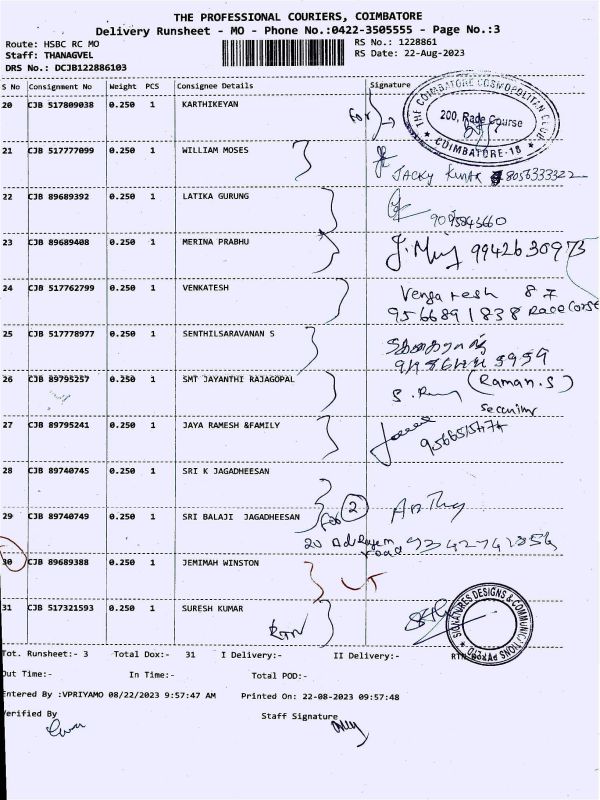 THE PROFESSIONAL COURIERS, COIMBATORE
Delivery Runsheet - MO - Phone No.:0422-3505555 - Page No.:3
Route: HSBC RC MO
RS No.: 1228861
Staff: THANAGVEL
RS Date: 22-Aug-2023
DRS No.: DCJB122886103
S No Consignment No Weight PCS Consignee Details Signature
20 CJB 517809038 0.250 1 KARTHIKEYAN
For
THE COIMBATORE COSMOPOLITAN CLUB
200, Race Course
COIMBATORE-18
21 CJB 517777099 0.250 1 WILLIAM MOSES
JACKY KUMAR 8056333322
22 CJB 89689392 0.250 1 LATIKA GURUNG
9095843660
23 CJB 89689408 0.250 1 MERINA PRABHU
9942630973
24 CJB 517762799 0.250 1 VENKATESH
Venga tesh 87
9566891838 Race Corse
25 CJB 517778977 0.250 1 SENTHILSARAVANAN S
26 CJB 89795257 0.250 1 SMT JAYANTHI RAJAGOPAL
(Raman.S)
27 CJB 89795241 0.250 1 JAYA RAMESH &FAMILY
28 CJB 89740745 0.250 1 SRI K JAGADHEESAN
29 CJB 89740749 0.250 1 SRI BALAJI JAGADHEESAN
For 2
20
road
30 CJB 89689388 0.250 1 JEMIMAH WINSTON
31 CJB 517321593 0.250 1 SURESH KUMAR
RTN
SIGNATURES DESIGNS & COMMUNICATIONS
Tot. Runsheet:- 3 Total Dox:- 31 I Delivery:- II Delivery:-
Out Time:- In Time:- Total POD:-
Entered By :VPRIYAMO 08/22/2023 9:57:47 AM Printed On: 22-08-2023 09:57:48
Verified By
Staff Signature